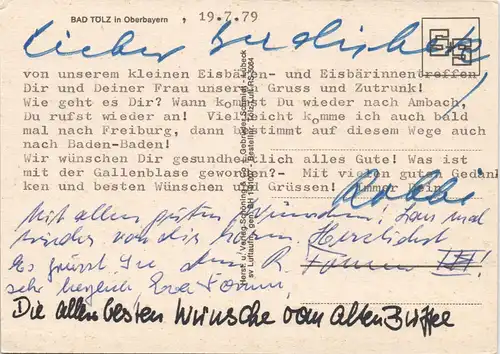 BAD TÖLZ in Oberbayern , 19.7.79
Lieber
von unserem kleinen Eisbären- und Eisbärinnentreffen
Dir und Deiner Frau unseren Gruss und Zutrunk!
Wie geht es Dir? Wann kommst Du wieder nach Ambach,
Du rufst wieder an! Vielleicht komme ich auch bald
mal nach Freiburg, dann bestimmt auf diesem Wege auch
nach Baden-Baden!
Wir wünschen Dir gesundheitlich alles Gute! Was ist
mit der Gallenblase geworden?- Mit vielen guten Gedan
ken und besten Wünschen und Grüssen! Immer Dein
Robbi
Mit allen guten Wünschen! Lass mal
wieder von dir hören. Herzlichst
Es grüsst Sie
sehr herzlich Eva
Die allerbesten Wünsche vom alten